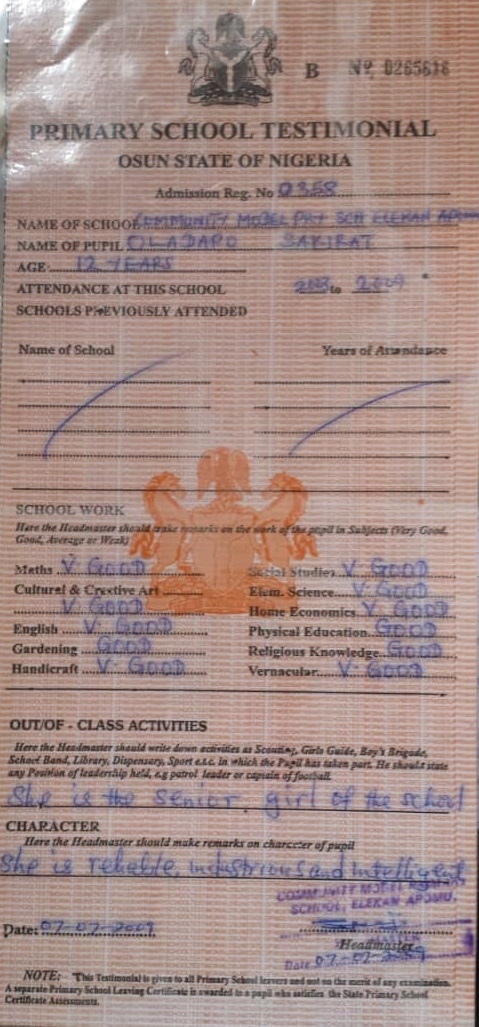 B Nº 0265616
PRIMARY SCHOOL TESTIMONIAL
OSUN STATE OF NIGERIA
Admission Reg. No 0358
NAME OF SCHOOL COMMUNITY MODEL PRY SCH ELEKAN APOMU
NAME OF PUPIL OLADAPO SAKIRAT
AGE: 12 YEARS
ATTENDANCE AT THIS SCHOOL 2003 to 2009
SCHOOLS PREVIOUSLY ATTENDED
Name of School Years of Attendance
SCHOOL WORK
Here the Headmaster should make remarks on the work of the pupil in Subjects (Very Good,
Good, Average or Weak)
Maths V. GOOD Social Studies V. GOOD
Cultural & Creative Art Elem. Science V. GOOD
V. GOOD Home Economics V. GOOD
English V. GOOD Physical Education GOOD
Gardening GOOD Religious Knowledge GOOD
Handicraft V. GOOD Vernacular V. GOOD
OUT/OF - CLASS ACTIVITIES
Here the Headmaster should write down activities as Scouting, Girls Guide, Boy's Brigade,
School Band, Library, Dispensary, Sport e.t.c. in which the Pupil has taken part. He should state
any Position of leadership held, e.g patrol leader or captain of football.
She is the senior girl of the school
CHARACTER
Here the Headmaster should make remarks on character of pupil
She is reliable, industrious and intelligent
COMMUNITY MODEL PRIMARY
SCHOOL, ELEKAN APOMU.
Date: 07-07-2009
Headmaster
Date 07-07-2009
NOTE: "This Testimonial is given to all Primary School leavers and not on the merit of any examination.
A separate Primary School Leaving Certificate is awarded to a pupil who satisfies the State Primary School
Certificate Assessments.